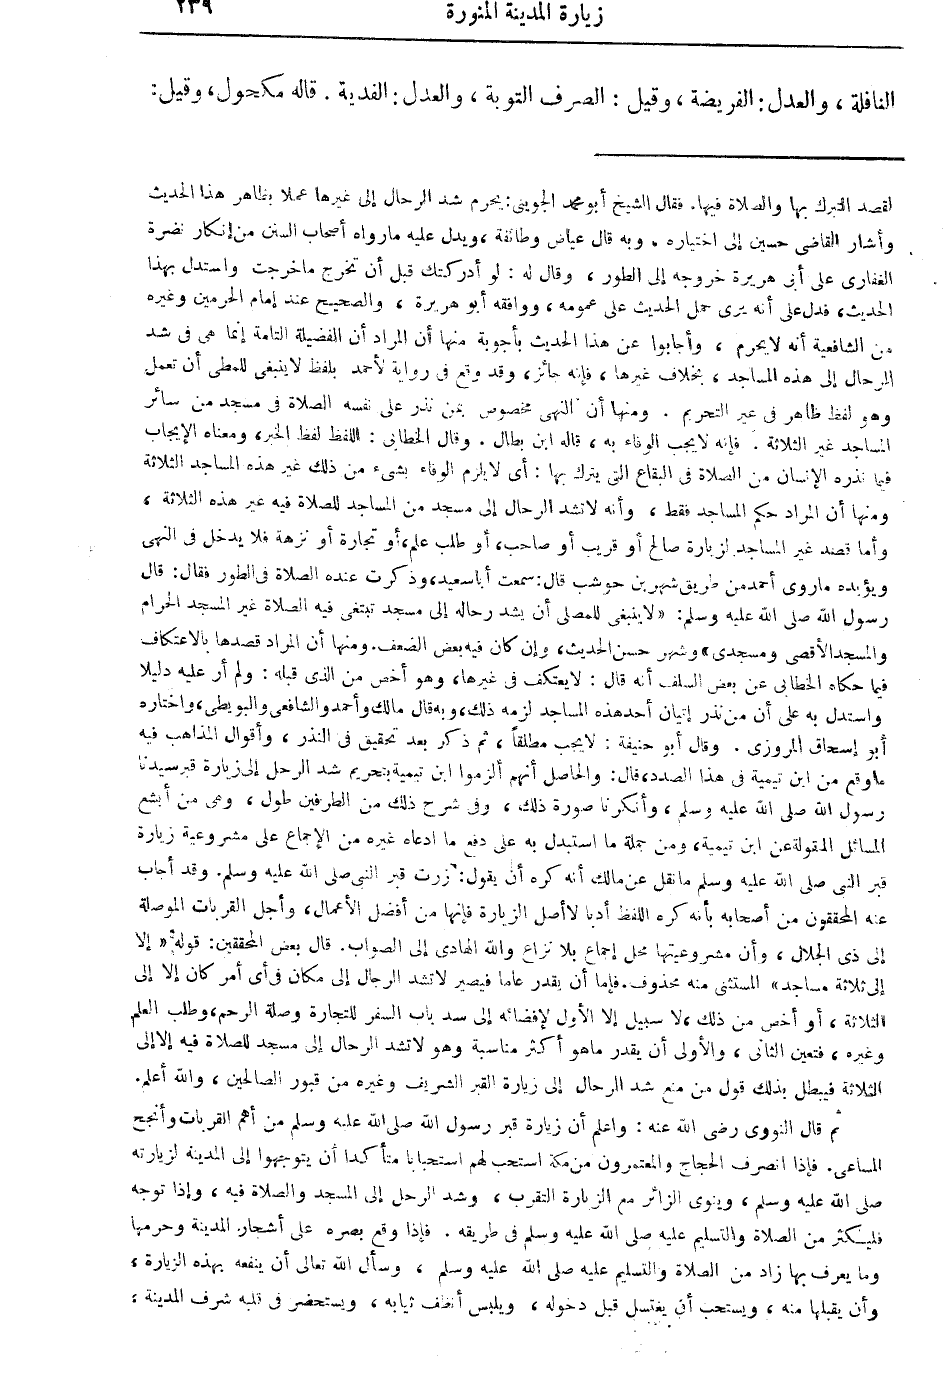 زيارة المدينة المنورة ٢٣٩
النافلة ، والعدل : الفريضة ، وقيل : الصرف التوبة ، والعدل : الفدية . قاله مكحول ، وقيل :
لقصد التبرك بها والصلاة فيها. فقال الشيخ أبو محمد الجويني: يحرم شد الرحال إلى غيرها عملا بظاهر هذا الحديث
وأشار القاضى حسين إلى اختياره . وبه قال عياض وطائفة ، ويدل عليه مارواه أصحاب السنن من إنكار نضرة
الغفارى على أبى هريرة خروجه إلى الطور ، وقال له : لو أدركتك قبل أن تخرج ماخرجت واستدل بهذا
الحديث ، فدل على أنه يرى حمل الحديث على عمومه ، ووافقه أبو هريرة ، والصحيح عند إمام الحرمين وغيره
من الشافعية أنه لا يحرم ، وأجابوا عن هذا الحديث بأجوبة منها أن المراد أن الفضيلة التامة إنما هى فى شد
الرحال إلى هذه المساجد ، بخلاف غيرها ، فإنه جائز ، وقد وقع فى رواية لأحمد بلفظ لا ينبغى للمطى أن تعمل
وهو لفظ ظاهر فى غير التحريم . ومنها أن النهى مخصوص بمن نذر على نفسه الصلاة فى مسجد من سائر
المساجد غير الثلاثة . فإنه لا يجب الوفاء به ، قاله ابن بطال . وقال الخطابى : اللفظ لفظ الخبر ، ومعناه الإيجاب
فيما نذره الإنسان من الصلاة فى البقاع التى يتبرك بها : أى لا يلزم الوفاء بشىء من ذلك غير هذه المساجد الثلاثة
ومنها أن المراد حكم المساجد فقط ، وأنه لا تشد الرحال إلى مسجد من المساجد للصلاة فيه غير هذه الثلاثة ،
وأما قصد غير المساجد لزيارة صالح أو قريب أو صاحب ، أو طلب علم ، أو تجارة أو نزهة فلا يدخل فى النهى
ويؤيده ماروى أحمد من طريق شهر بن حوشب قال : سمعت أبا سعيد ، وذكرت عنده الصلاة فى الطور فقال : قال
رسول الله صلى الله عليه وسلم: «لا ينبغى للمصلى أن يشد رحاله إلى مسجد تبتغى فيه الصلاة غير المسجد الحرام
والمسجد الأقصى ومسجدى» وشهر حسن الحديث ، وإن كان فيه بعض الضعف . ومنها أن المراد قصدها بالاعتكاف
فيما حكاه الخطابى عن بعض السلف أنه قال : لا يعتكف فى غيرها ، وهو أخص من الذى قبله : ولم أر عليه دليلا
واستدل به على أن من نذر إتيان أحد هذه المساجد لزمه ذلك ، وبه قال مالك وأحمد والشافعى والبويطى ، واختاره
أبو إسحاق المروزى . وقال أبو حنيفة : لا يجب مطلقاً ، ثم ذكر بعد تحقيق فى النذر ، وأقوال المذاهب فيه
ما وقع من ابن تيمية فى هذا الصدد ، قال : والحاصل أنهم ألزموا ابن تيمية بتحريم شد الرحل إلى زيارة قبر سيدنا
رسول الله صلى الله عليه وسلم ، وأنكرنا صورة ذلك ، وفى شرح ذلك من الطرفين طول ، وهى من أبشع
المسائل المنقولة عن ابن تيمية ، ومن جملة ما استبدل به على دفع ما ادعاه غيره من الإجماع على مشروعية زيارة
قبر النبى صلى الله عليه وسلم ما نقل عن مالك أنه كره أن يقول : زرت قبر النبى صلى الله عليه وسلم . وقد أجاب
عنه المحققون من أصحابه بأنه كره اللفظ أدبا لا أصل الزيارة فإنها من أفضل الأعمال ، وأجل القربات الموصلة
إلى ذى الجلال ، وأن مشروعيتها محل إجماع بلا نزاع والله الهادى إلى الصواب . قال بعض المحققين : قوله «إلا
إلى ثلاثة مساجد» المستثنى منه محذوف . فإما أن يقدر عاما فيصير لا تشد الرحال إلى مكان فى أى أمر كان إلا إلى
الثلاثة ، أو أخص من ذلك ، لا سبيل إلا الأول لإفضائه إلى سد باب السفر للتجارة وصلة الرحم ، وطلب العلم
وغيره ، فتعين الثانى ، والأولى أن يقدر ماهو أكثر مناسبة وهو لا تشد الرحال إلى مسجد للصلاة فيه إلا إلى
الثلاثة فيبطل بذلك قول من منع شد الرحال إلى زيارة القبر الشريف وغيره من قبور الصالحين ، والله أعلم .
ثم قال النووى رضى الله عنه : واعلم أن زيارة قبر رسول الله صلى الله عليه وسلم من أهم القربات وأنجح
المساعى . فإذا انصرف الحجاج والمعتمرون من مكة استحب لهم استحبابا متأكدا أن يتوجهوا إلى المدينة لزيارته
صلى الله عليه وسلم ، وينوى الزائر مع الزيارة التقرب ، وشد الرحل إلى المسجد والصلاة فيه ، وإذا توجه
فليكثر من الصلاة والتسليم عليه صلى الله عليه وسلم فى طريقه . فإذا وقع بصره على أشجار المدينة وحرمها
وما يعرف بها زاد من الصلاة والتسليم عليه صلى الله عليه وسلم ، وسأل الله تعالى أن ينفعه بهذه الزيارة ،
وأن يقبلها منه ، ويستحب أن يغتسل قبل دخوله ، ويلبس أنظف ثيابه ، ويستحضر فى قلبه شرف المدينة ،